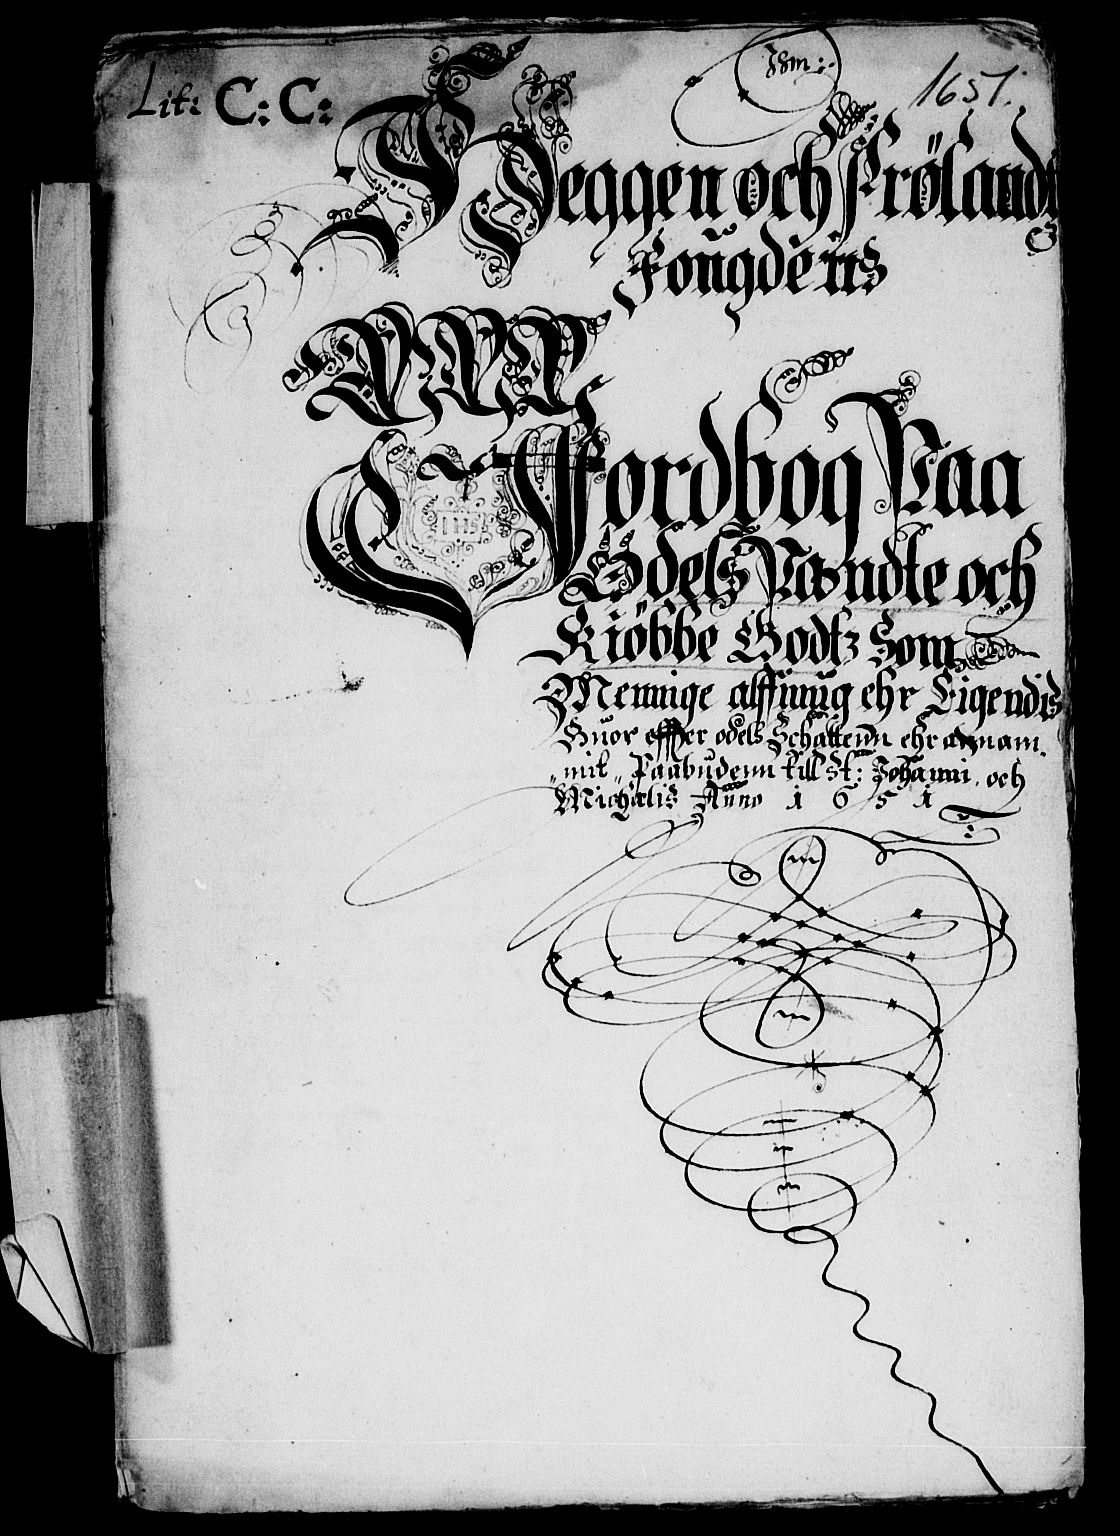 Lit: C: C:
1651.
Weggen och Frölandtz
Fougderis
Jordbog Paa
Odels Landte och
Kiöbbe Godtz Som
Mennige alffmug ehr Eigendis
Huor effter odels Schatten ehr annam
mit Paabudenn till St: Johanni, och
Michaelis Anno 1651